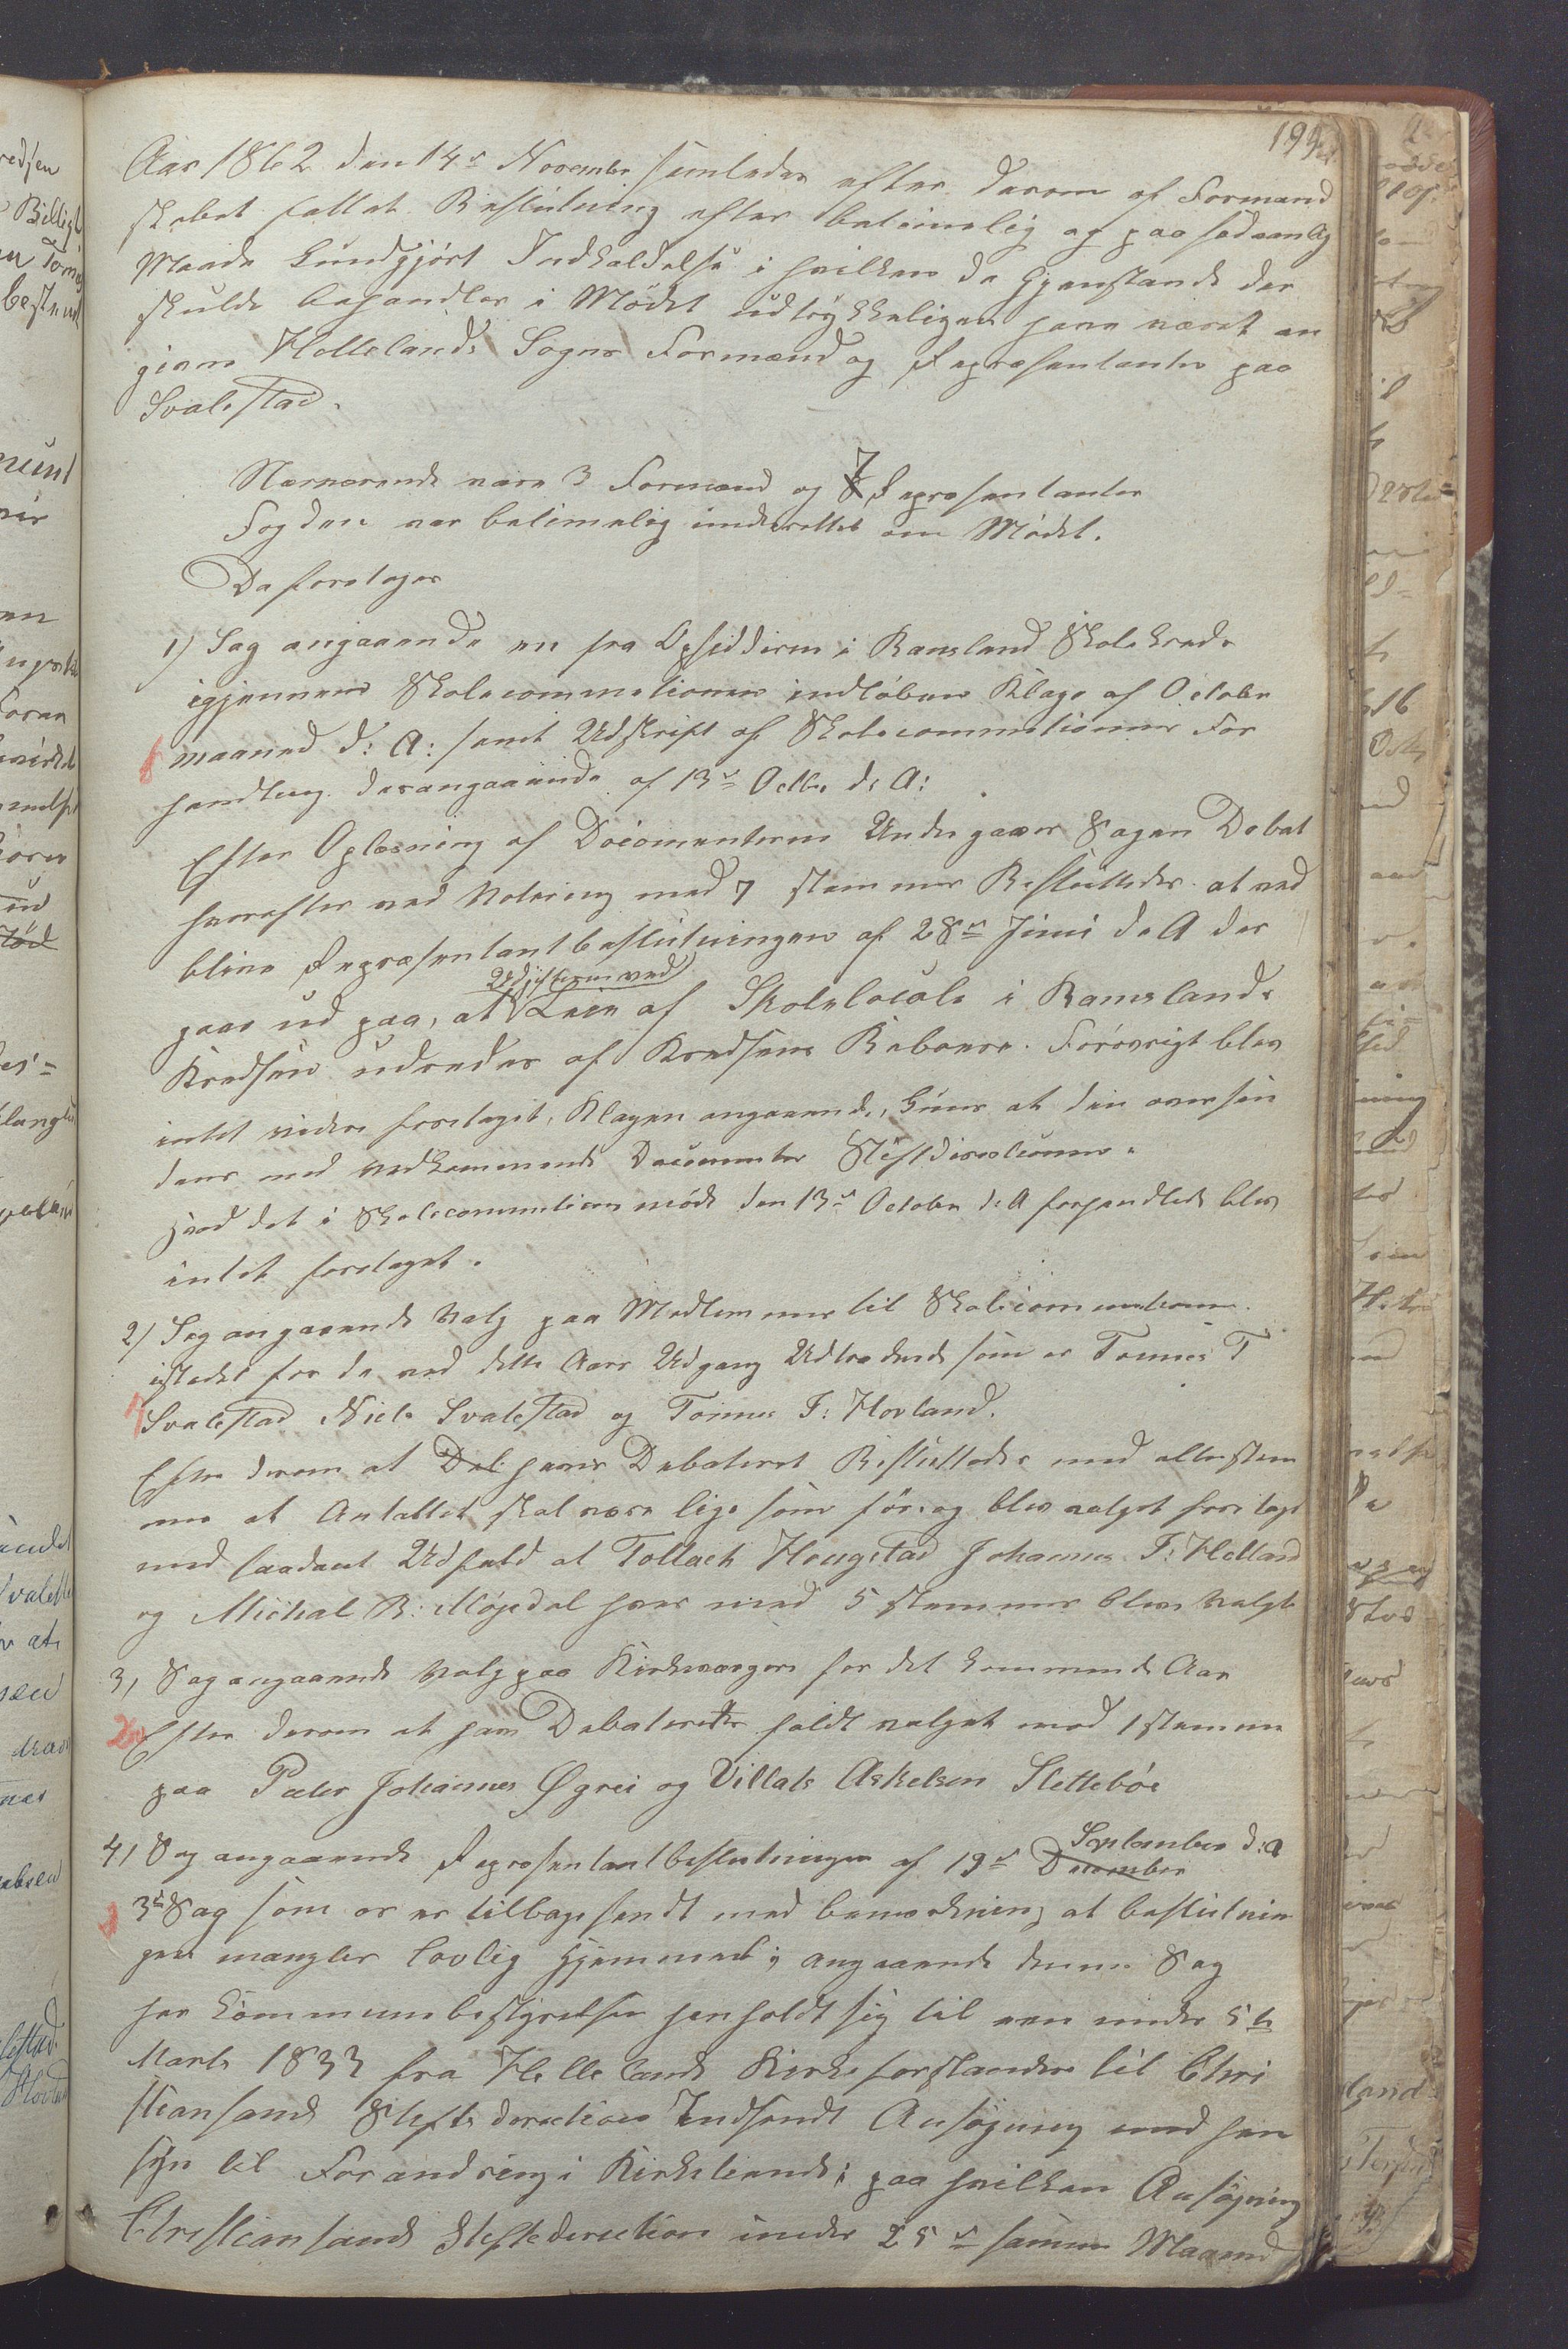 199
Aar 1862 den 14de November samledes efter derom af Formand
skabet fattet Beslutning efter betimelig og paa sædvanlig
Maade Kundgjört Indkaldelse i hvilken de Gjenstande der
skulde behandles i Mödet udtrykkeligen have været an
givne Hellelands Sogns Formænd og Repræsentanter paa
Svalestad.
Nærværende vare 3 Formænd og 7 Repræsentanter
Fogden var betimelig underettet om Mödet.
Da foretoges
1) Sag angaaende en fra Opsidderne i Ramsland Skolekreds
igjennem Skolecommitionen indlöben Klage af October
maaned d: A: samt Udskrift af Skolecommitionens For
handling derangaaende af 13de Octbr d: A:
Efter Oplæsning af Documenterne Undergaaer Sagen Debat
hvorefter ved Votering med 7 stemmer Besluttedes at ved
blive Repræsentantbeslutningen af 28de Juni d A der
gaar ud paa, at Udgifterne ved Leie af Skolelocale i Ramslands
Kredsen udredes af Kredsens Beboere. Forövrigt blev
intet videre foretaget, Klagen angaaende, kuns at den oversen
des med vedkommende Documenter Stiftdirectionen.
hvad det i Skolecommitions möde den 13de October d: A forhandlede blev
intet foretaget.
2) Sag angaaende Valg paa Medlemmer til Skolecommitionen
istedet for de ved dette Aars Udgang Udtrædende som er Tönnes T
Svalestad Niels Svalestad og Tönnes T: Hovland.
Efter derom at Deb haver Debateret Besluttedes med alle stem
mer at Antallet skal være lige som för, og blev valget foretaget
med saadant Udfald at Tollach Hougstad Johannes T: Helland
og Michal B: Möjedal hver med 5 stemmer bleve Valgte
3, Sag angaaende Valg paa Kirkeværger for det kommende Aar
Efter derom at have Debateret faldt valget med 1 stemme
paa Peder Johannes Øgrei og Villats Askelsen Sletteböe
4) Sag angaaende Repræsentantbeslutningen af 19de December September d: A
3die Sag som os er tilbagesendt med bemærkning at beslutnin
gen mangler lovlig Hjemmel; angaaende denne Sag
har Kommunebestyrelsen henholdt sig til een under 5te
Marts 1833 fra Hellelands Kirkeforstandere til Chri
stiansands Stiftsdirection Indsendt Ansögning med hen
syn til Forandring i Kirketiende; paa hvilken Ansögning
Christiansands Stiftsdirection under 25de samme Maaned